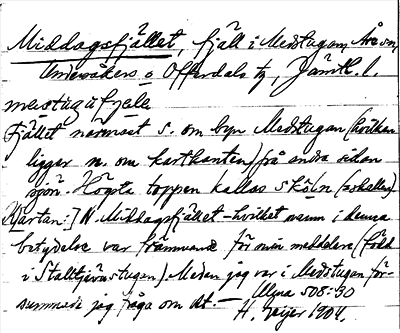 Middagsfjället, fjäll i Medstugan, Åre sn,
Undersåkers o Offerdals tg, Jämtl. l.
mestugufjɛlɛ
Fjället närmast S. om byn Medstugan (hvilken
ligger N. om kartkanten) på andra sidan
sjön. Högsta toppen kallas skåln (= skallen)
Kartan:] N Middagsfjället – hvilket namn i denna
betydelse var främmande för min meddelare (född
i Stalltjärnstugan). Medan jag var i Medstugan för-
summade jag fråga om det. —
Ulma 508:90
H. Geijer 1904.